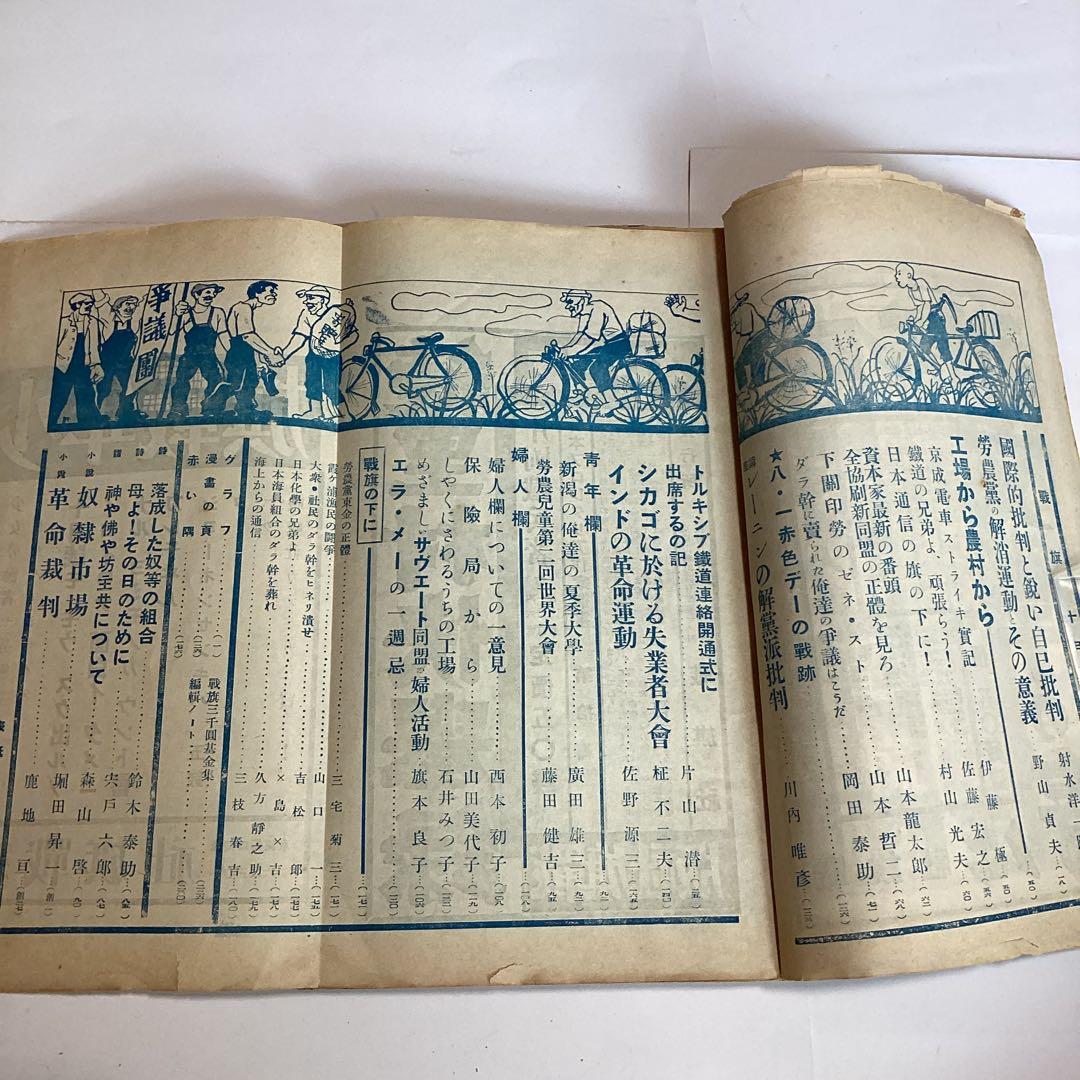 戰旗 十
國際的批判と鋭い自己批判 射水洋一郎
勞農黨の解消運動とその意義 野山貞夫…(一八)
工場から農村から
伊藤 極(五〇)
京成電車ストライキ實記 佐藤宏之…(五六)
鐵道の兄弟よ、頑張らう! 村山光夫…(六〇)
日本通信の旗の下に! 山本龍太郎…(六二)
資本家最新の番頭
全協刷新同盟の正體を見ろ 山本哲二…(六八)
下關印勞のゼネ・スト 岡田泰助…(七一)
ダラ幹に賣られた俺達の爭議はこうだ…(一三六)
★八・一赤色デーの戰跡
レーニンの解黨派批判 川内唯彦…(一三六)
トルキシブ鐵道連絡開通式に
出席するの記 片山潜…(三五)
シカゴに於ける失業者大會 柾不二夫
インドの革命運動 佐野源三
青年欄
新潟の俺達の夏季大學 廣田雄三…(九二)
勞農兒童第二回世界大會 藤田健吉…(九五)
婦人欄
婦人欄についての一意見 西本初子…(一一八)
保險局から 山田美代子…(一一九)
しやくにさわるうちの工場 石井みつ子
めざまし・サウエート同盟の婦人活動 旗本良子
エラ・メーの一週忌
戰旗の下に
勞農黨東金の正體
霞ケ浦漁民の鬪爭 三宅菊三…(一七二)
大衆・社民のダラ幹をヒネリ潰せ 山口一…(一七五)
日本化學の兄弟よ 吉松郎
日本海員組合のダラ幹を葬れ ×島×吉
海上からの通信 久方靜之助…(一七九)
三枝春吉…(一八〇)
グラフ…(一)
漫畫の頁
赤い隅…(一七六)
戰旗三千圓基金集
編輯ノート
詩 落成した奴等の組合 鈴木泰助
詩 母よ!その日のために 宍戸六郎…(八七)
神や佛や坊主共について 森山啓…(九〇)
小説 奴隷市場 堀田昇一…(創一)
小説 革命裁判 鹿地亘
爭議團